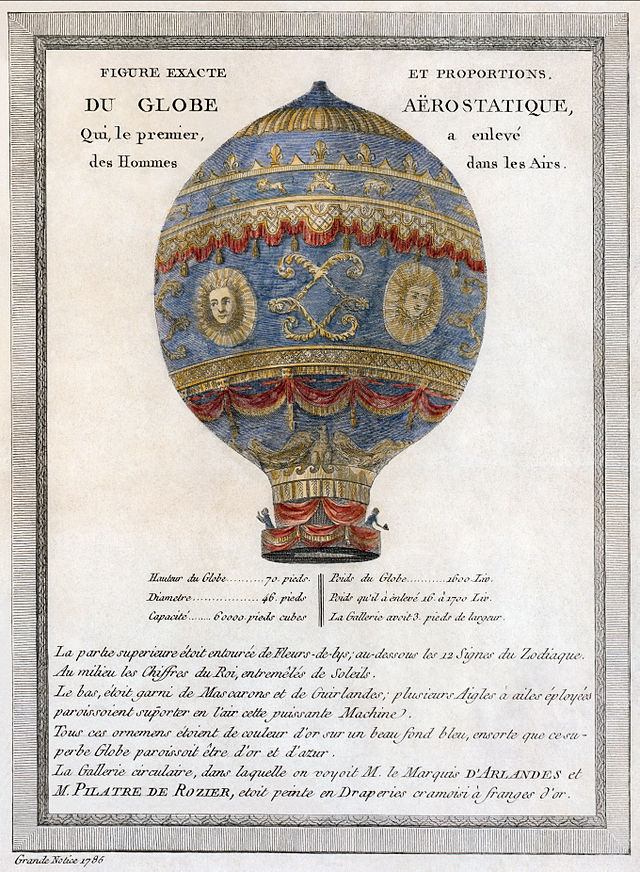 FIGURE EXACTE ET PROPORTIONS.
DU GLOBE AËROSTATIQUE,
Qui, le premier, a enlevé
des Hommes dans les Airs.
Hauteur du Globe..........70. pieds.
Diametre.................46. pieds
Capacité.......60000.pieds cubes
Poids du Globe...........1600 Liv.
Poids qu'il à enlevé 16. à 1700 Liv.
La Gallerie avoit 3. pieds de largeur.
La partie superieure étoit entourée de Fleurs-de-lys; au-dessous les 12 Signes du Zodiaque.
Au milieu les Chiffres du Roi, entremêlés de Soleils.
Le bas, étoit garni de Mascarons et de Guirlandes; plusieurs Aigles à ailes éployées
paroissoient suporter en l'air cette puissante Machine.
Tous ces ornemens étoient de couleur d'or sur un beau fond bleu, ensorte que ce su-
perbe Globe paroissoit être d'or et d'azur.
La Gallerie circulaire, dans laquelle on voyoit M. le Marquis D'ARLANDES et
M. PILATRE DE ROZIER, etoit peinte en Draperies cramoisi à franges d'or.
Grande Notice 1786